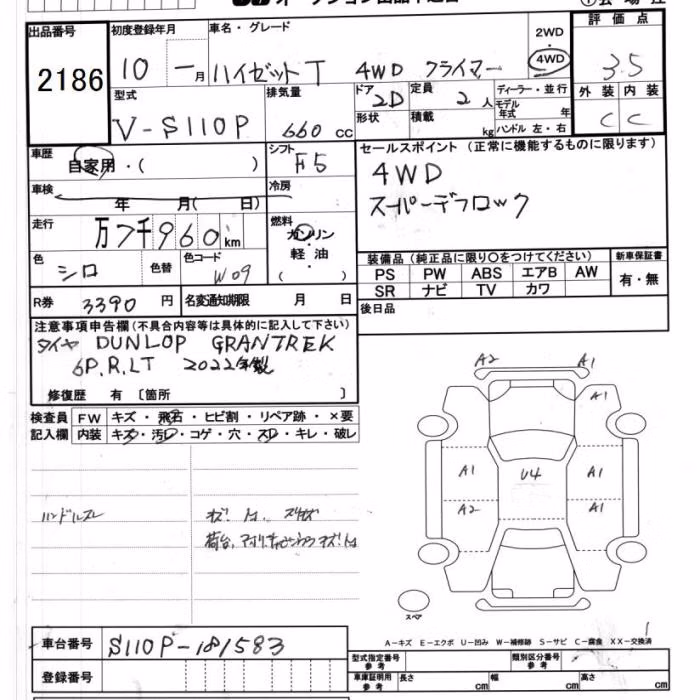 出品番号
2186
初度登録年月
10 - 1月
車名・グレード
ハイゼットT 4WD クライマー
2WD
・
4WD
評価点
3.5
型式
V-S110P
排気量
660 cc
ドア
2D
形状
定員
2 人
積載
kg
ディーラー・並行
モデル
年式 年
ハンドル 左・右
外装
内装
C
C
車歴
自家用・( )
シフト
F5
車検
年 月( 日)
冷房
セールスポイント (正常に機能するものに限ります)
4WD
スーパーデフロック
走行
万7千960 km
燃料
ガソリン
軽油
( )
色
シロ
色替
色コード
W09
R券 3390 円
名変通知期限 月 日
装備品 (純正品に限り○をつけてください)
新車保証書
PS PW ABS エアB AW
SR ナビ TV カワ
有・無
後日品
注意事項申告欄 (不具合内容等は具体的に記入して下さい)
タイヤ DUNLOP GRANTREK
6P.R.LT 2022年製
修復歴 有 〔箇所 〕
検査員
記入欄
FW キズ・飛石・ヒビ割・リペア跡・×要
内装 キズ・汚レ・コゲ・穴・スレ・キレ・破レ
ハンドルスレ
A2 A1
A1
A1 U4 A1
A2 A1
スペア
A-キズ E-エクボ U-凹み W-補修跡 S-サビ C-腐食 XX-交換済
車台番号 S110P-181583
登録番号
型式指定番号
参考
類別区分番号
参考
車庫証明用
参考
長さ cm
幅 cm
高さ cm